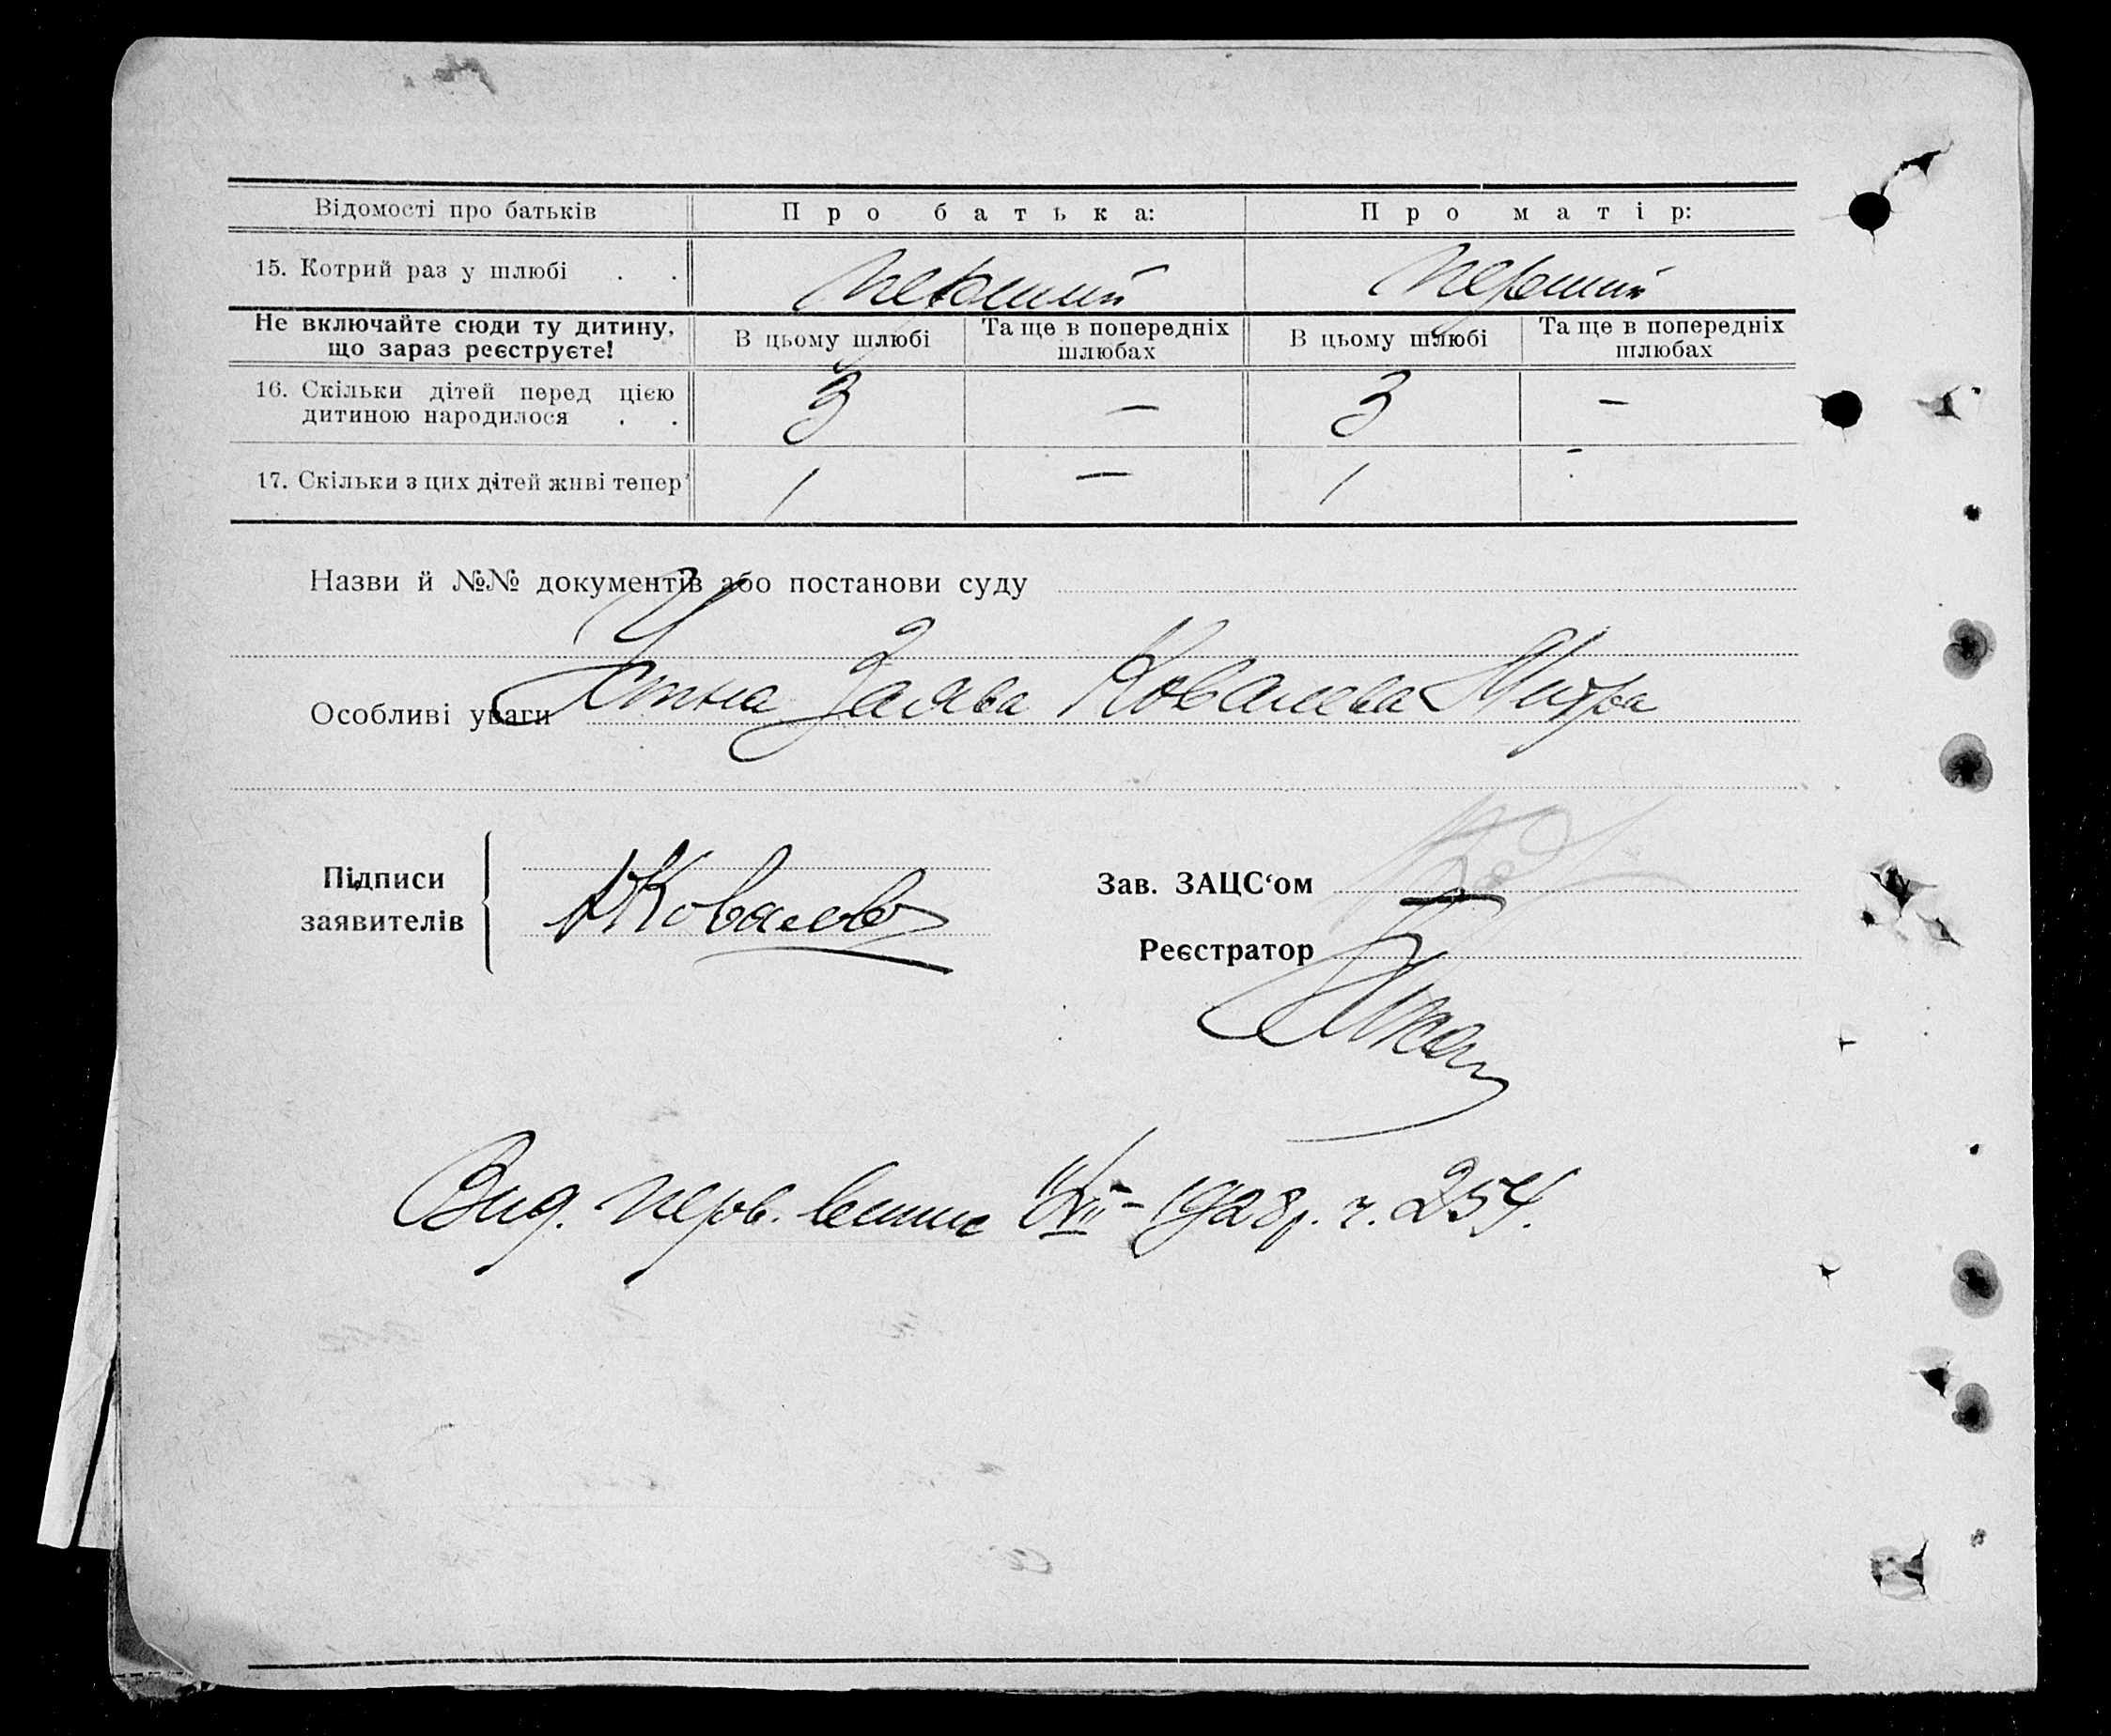 Відомості про батьків Про батька: Про матір:
15. Котрий раз у шлюбі . . перший перший
Не включайте сюди ту дитину, що зараз реєструєте! В цьому шлюбі Та ще в попередніх шлюбах В цьому шлюбі Та ще в попередніх шлюбах
16. Скільки дітей перед цією
дитиною народилося . . 3 — 3 —
17. Скільки з цих дітей живі тепер 1 — 1 -
Назви й №№ документів або постанови суду
Устна Заява Ковалева
Особливі уваги
Підписи
заявителів
Ковалев
Зав. ЗАЦС‘ом
Реєстратор
Вид. перв. 1928р. ч. 254.